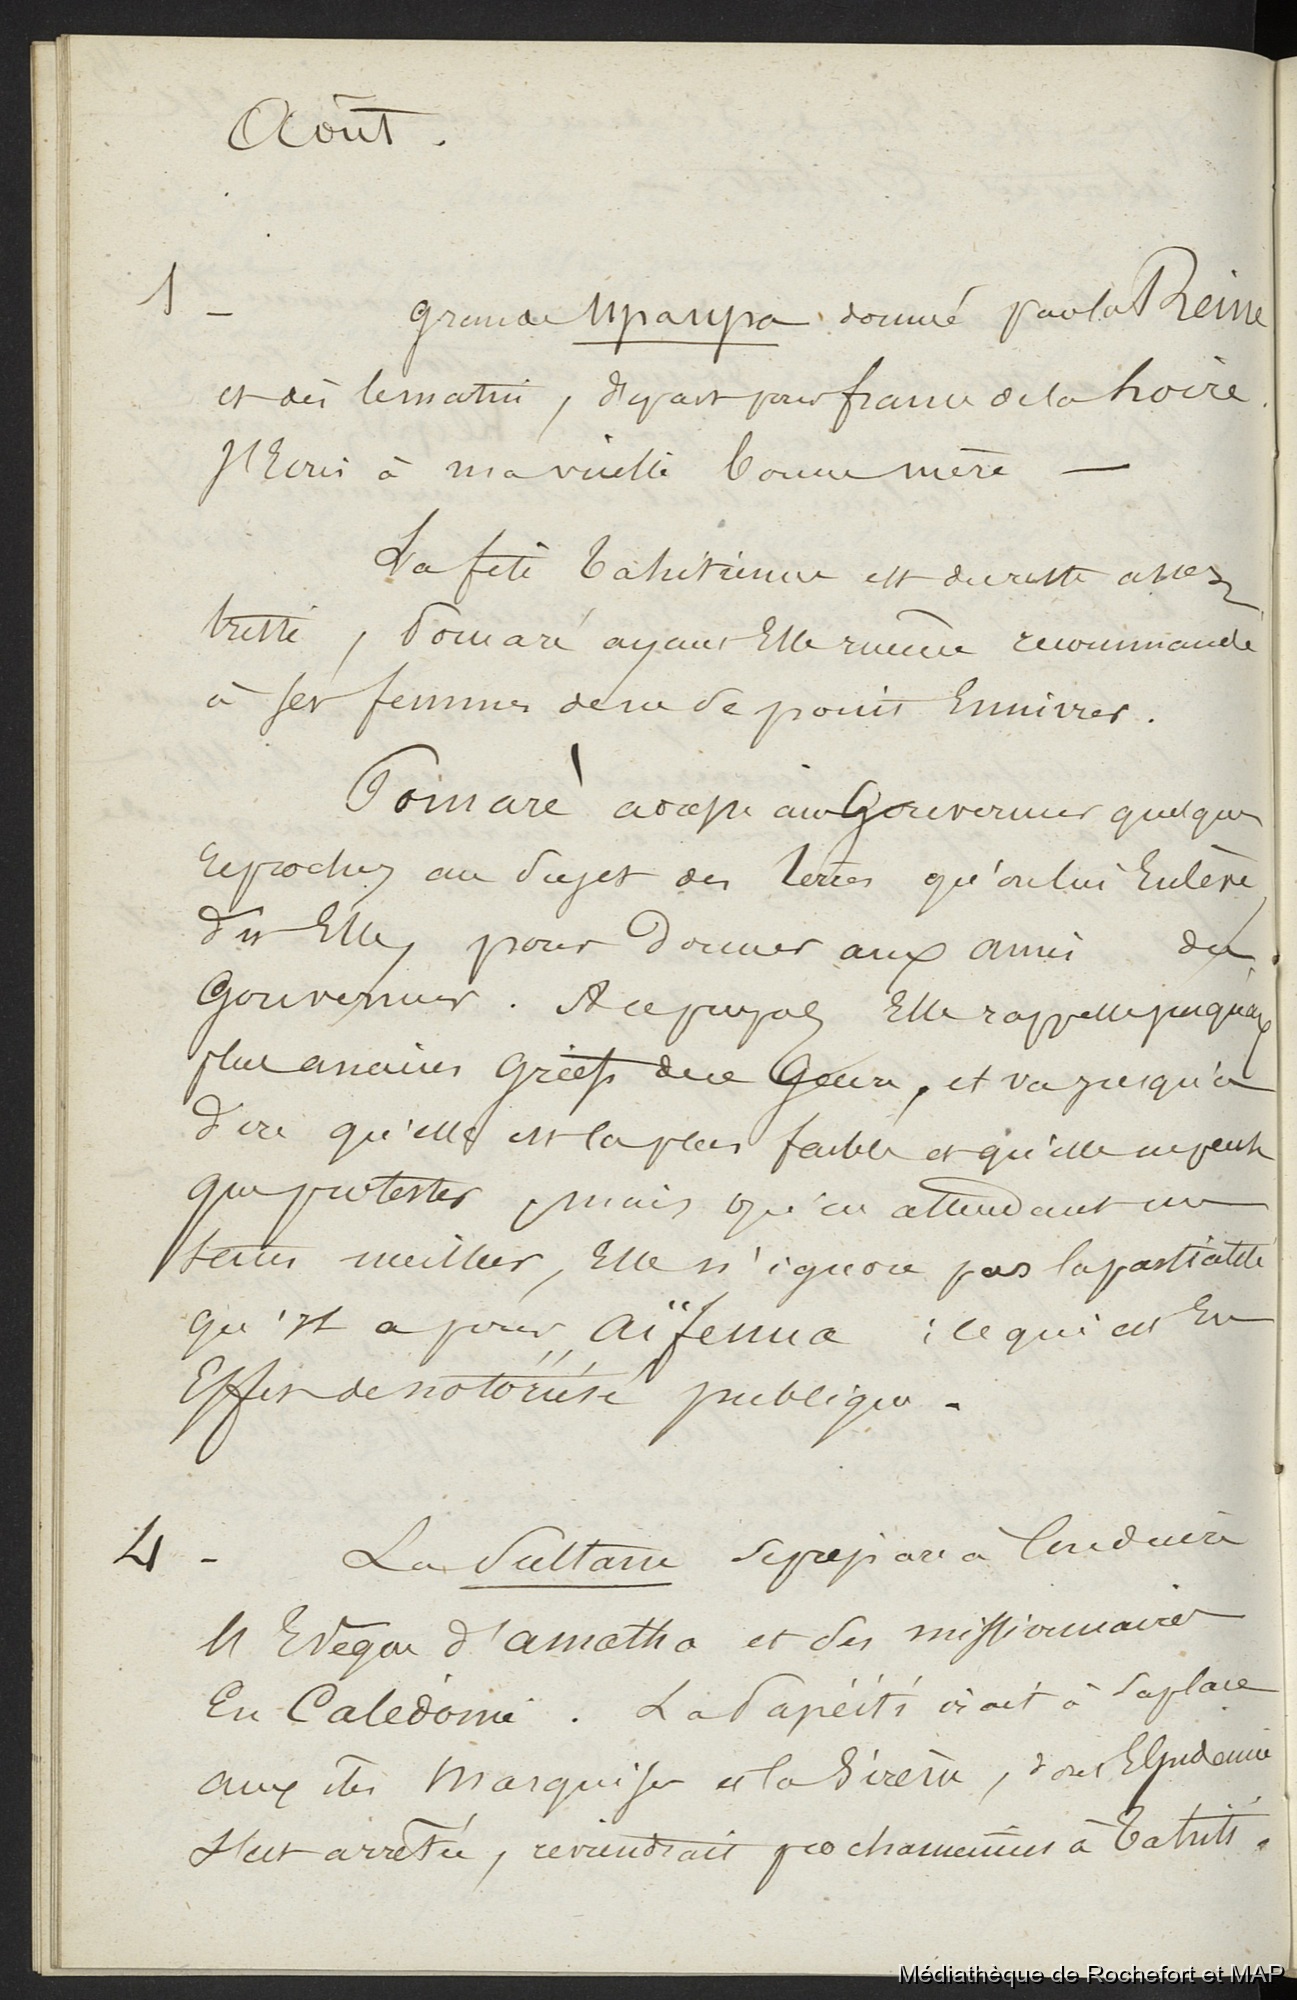 Août.
1 - grande Upaupa donné par la Reine
et dès le matin, départ pour france de la hoire.
J'Ecris à ma vieille bonne mère —
La fête tahitienne est du reste assez
triste, Pomaré ayant Elle même recommandé
à ses femmes de ne se point Ennivrer.
Pomaré adresse au Gouverneur quelques
reproches au sujet des terres qu'on lui Enlève
dit Elle, pour donner aux amis du
Gouverneur. A ce propos Elle rappelle jusqu'aux
plus anciens griefs de ce Genre, et va jusqu'à
dire qu'elle est la plus faible et qu'elle ne peut
que protester, mais qu'en attendant un
tems meilleur, Elle n'ignore pas la partialité
qu'il a pour Aïfenua ; ce qui est En
Effet de notoriété publique.
4 - La Sultane se prépare à Conduire
l'Evêque d'Amatha et des missionnaires
En Calédonie. La Papéiti irait à sa place
aux îles Marquises et la Sirène, dont l'Epidemie
s'est arrêtée, reviendrait prochainement à Tahiti.
Médiathèque de Rochefort et MAP